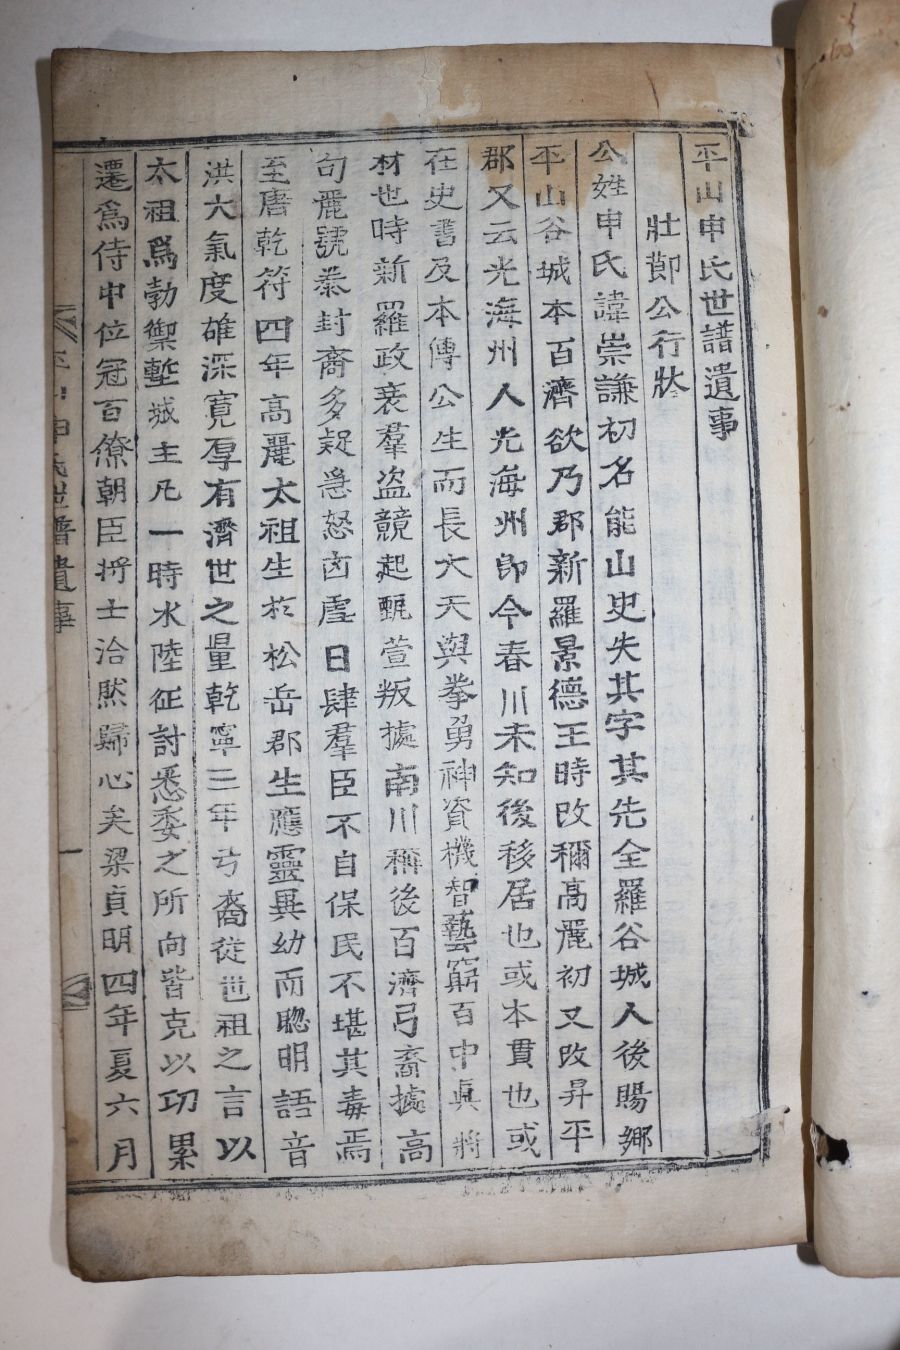 平山申氏世譜遺事
壯節公行狀
公姓申氏諱崇謙初名能山史失其字其先全羅谷城人後賜鄉
平山谷城本百濟欲乃郡新羅景德王時改穪高麗初又改昇平
郡又云光海州人光海州卽今春川未知後移居也或本貫也或
在史書及本傳公生而長大天與拳勇神資機智藝窮百中眞將
材也時新羅政衰羣盜競起甄萱叛據南川稱後百濟弓裔據高
句麗號泰封裔多疑急怒凶虐日肆羣臣不自保民不堪其毒焉
至唐乾符四年高麗太祖生於松岳郡生應靈異幼而聰明語音
洪大氣度雄深寬厚有濟世之量乾寧三年弓裔從世祖之言以
太祖爲勃禦塹城主凡一時水陸征討悉委之所向皆克以功累
遷爲侍中位冠百僚朝臣將士洽然歸心矣梁貞明四年夏六月
平山申氏世譜遺事 一